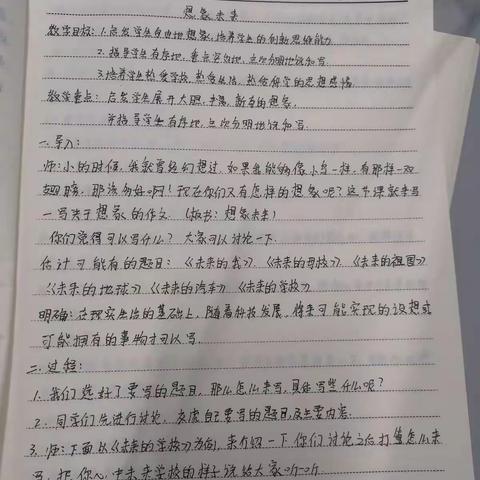 想象未来
教学目标：1.启发学生自由地想象，培养学生的创新思维能力
2.指导学生有序地，重点突出地，层次分明地说和写
3.培养学生热爱学校，热爱生活，热爱科学的思想感情
教学重点：启发学生展开大胆，丰富，新奇的想象。
并指导学生有序地，层次分明地说和写.
一.导入：
师：小的时候，我就曾经幻想过，如果我能够像小鸟一样，有那样一双
翅膀，那该多好啊！现在你们又有怎样的想象呢？这节课就来写
一写关于想象的作文（板书：想象未来）
你们觉得可以写什么？大家可以讨论一下.
估计可能有的题目：《未来的我》、《未来的母校》、《未来的祖国》
《未来的地球》《未来的汽车》《未来的学校》
明确：在现实生活的基础上，随着科技发展，将来可能实现的设想或
可能拥有的事物才可以写.
二.过程：
1.我们选好了要写的题目，那么怎么来写，具体写些什么呢？
2.同学们先进行讨论，考虑自己要写的题目及主要内容.
3.师：下面以《未来的学校》为例，来介绍一下你们讨论之后打算怎么来
写，把你心中未来学校的样子说给大家听一听